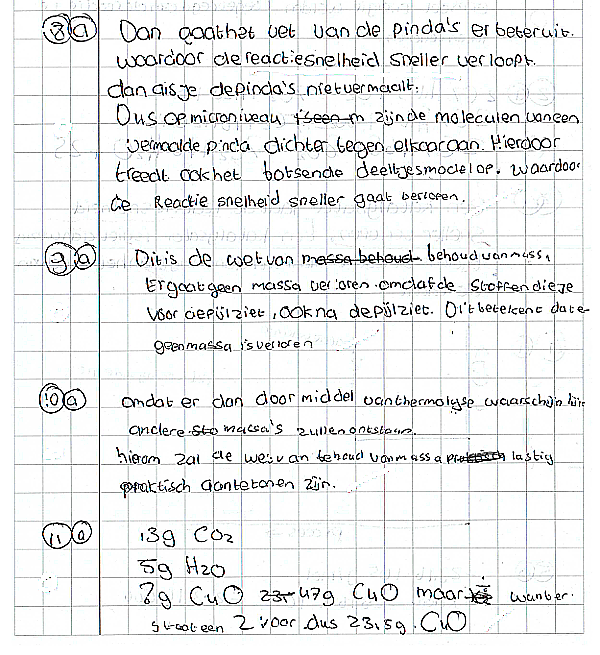 8 a Dan gaat het vet van de pinda's er beter uit.
waardoor de reactiesnelheid sneller verloopt.
dan als je de pinda's niet vermaalt.
Dus op microniveau zijn de moleculen van een
vermaalde pinda dichter tegen elkaar aan. Hierdoor
treedt ook het botsende deeltjesmodel op. waardoor
de Reactie snelheid sneller gaat verlopen.
9 a Dit is de wet van massa behoud behoud van massa.
Er gaat geen massa verloren omdat de stoffen die je
voor de pijl ziet, ook na de pijl ziet. Dit betekent dat e
geen massa is verloren
10 a omdat er dan door middel van thermolyse waarschijnlijk
andere sto massa's zullen ontstaan.
hierom zal de wet van behoud van massa praktisch lastig
praktisch aantetonen zijn.
11 a 13g CO2
5g H2O
?g CuO 23, 47g CuO maar wanber.
staat een 2 voor dus 23,5g. CuO